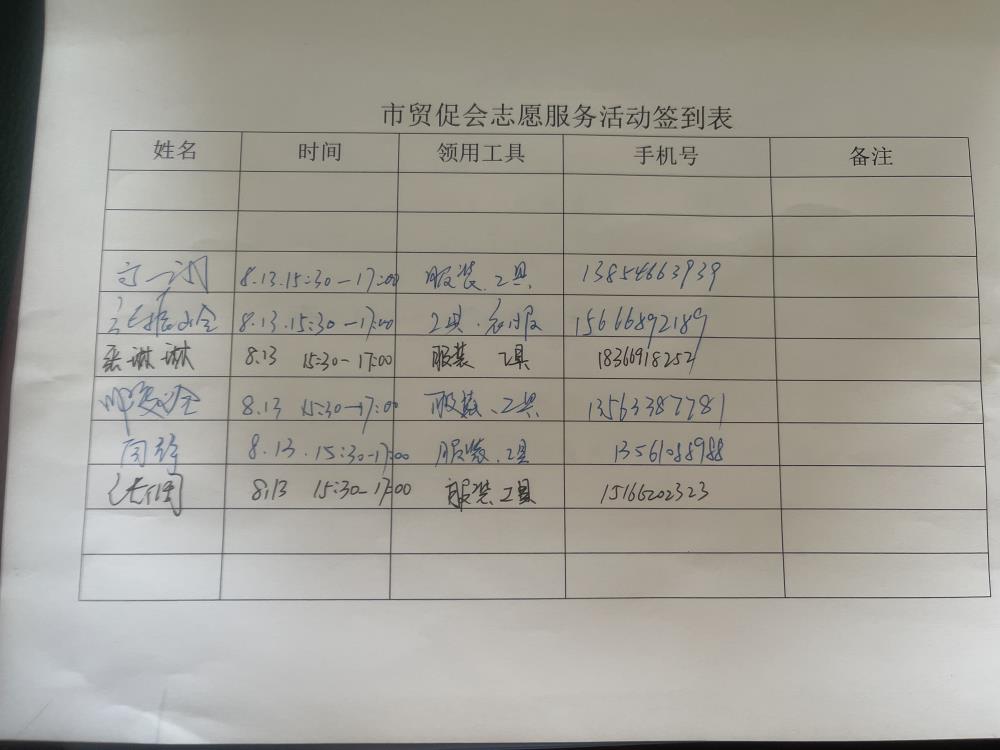 市贸促会志愿服务活动签到表
姓名 时间 领用工具 手机号 备注
8.13.15:30-17:00 服装、工具 13854663939
8.13.15:30-17:00 工具、衣服 15666892189
琳琳 8.13 15:30-17:00 服装 工具 18366918252
8.13 15:30-17:00 服装、工具 13563387781
8.13.15:30-17:00 服装、工具 13561088988
8.13 15:30-17:00 服装、工具 15166202323